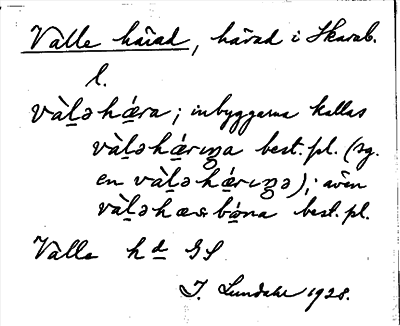 Valle härad, härad i Skarab.
l.
và̀ḻəhǽra; inbyggarna kallas
và̀ḻəhǽrıŋa best. pl. (sg.
en và̀ḻəhǽrıŋə); även
và̀ḻəhæsbǿna best. pl.
Valle hd GS
I. Lundahl 1928.